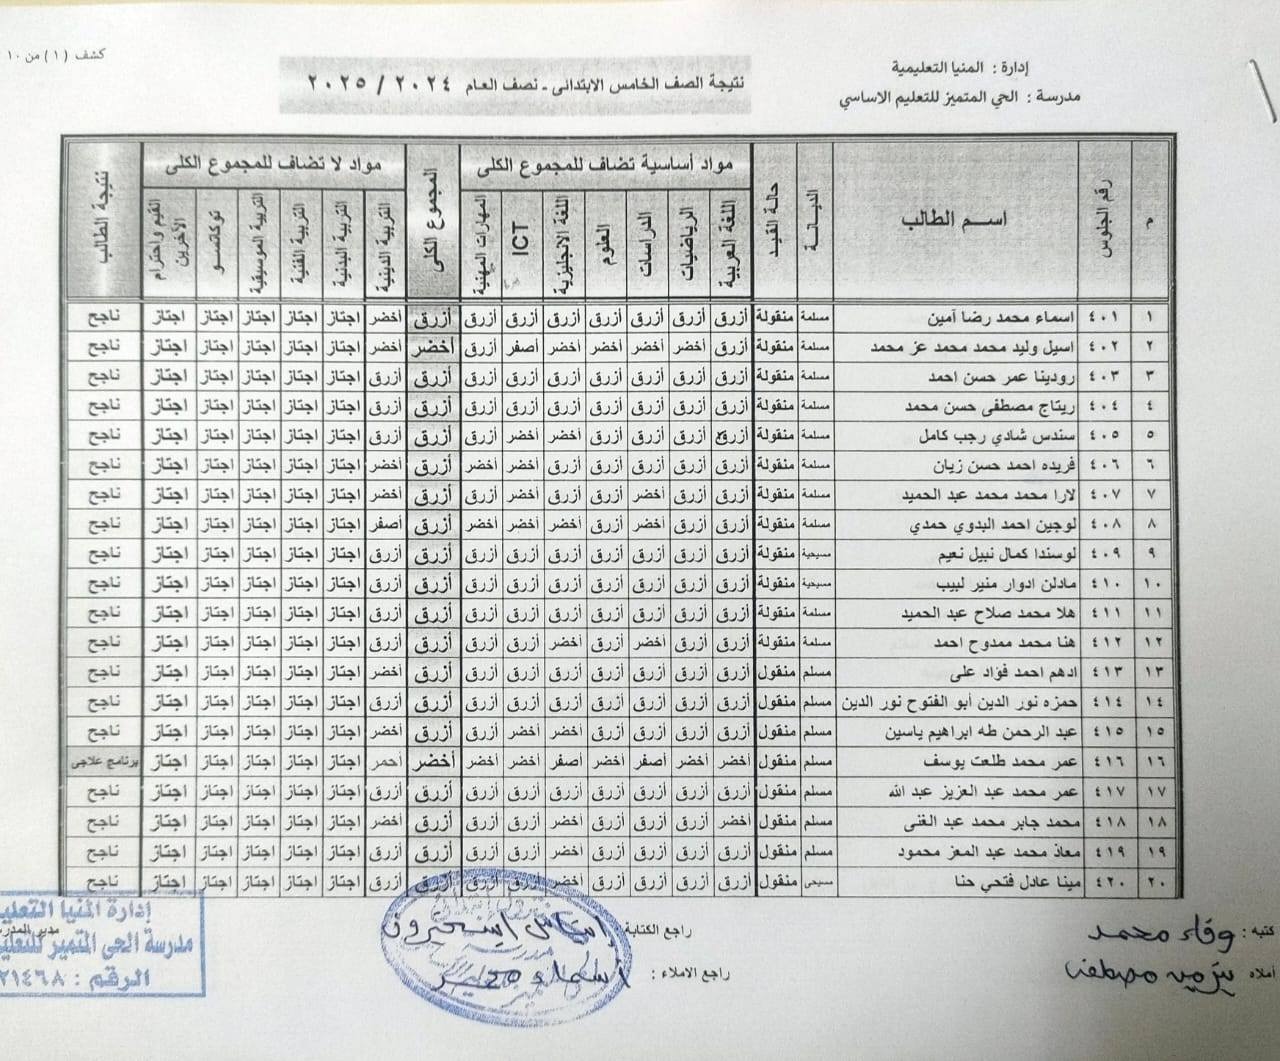 كشف (١) من ١٠
إدارة : المنيا التعليمية
مدرسة : الحي المتميز للتعليم الاساسي
نتيجة الصف الخامس الابتدائى - نصف العام ٢٠٢٤ / ٢٠٢٥
م رقم الجلوس اسم الطالب الديانة حالة القيد مواد أساسية تضاف للمجموع الكلى المجموع الكلى مواد لا تضاف للمجموع الكلى نتيجة الطالب
اللغة العربية الرياضيات الدراسات العلوم اللغة الانجليزية ICT المهارات المهنية التربية الدينية التربية البدنية التربية الفنية التربية الموسيقية توكاتسو القيم واحترام الأخرين
١ ٤٠١ اسماء محمد رضا آمين مسلمة منقولة أزرق أزرق أزرق أزرق أزرق أزرق أزرق أزرق أخضر اجتاز اجتاز اجتاز اجتاز اجتاز ناجح
٢ ٤٠٢ اسيل وليد محمد محمد عز محمد مسلمة منقولة أزرق أخضر أخضر أخضر أخضر أصفر أزرق أخضر أخضر اجتاز اجتاز اجتاز اجتاز اجتاز ناجح
٣ ٤٠٣ رودينا عمر حسن احمد مسلمة منقولة أزرق أزرق أزرق أزرق أزرق أزرق أزرق أزرق أزرق اجتاز اجتاز اجتاز اجتاز اجتاز ناجح
٤ ٤٠٤ ريتاج مصطفى حسن محمد مسلمة منقولة أزرق أزرق أزرق أزرق أزرق أزرق أزرق أزرق أزرق اجتاز اجتاز اجتاز اجتاز اجتاز ناجح
٥ ٤٠٥ سندس شادي رجب كامل مسلمة منقولة أزرق أزرق أزرق أزرق أخضر أخضر أزرق أزرق أزرق اجتاز اجتاز اجتاز اجتاز اجتاز ناجح
٦ ٤٠٦ فريده احمد حسن زيان مسلمة منقولة أزرق أزرق أزرق أزرق أزرق أخضر أخضر أزرق أخضر اجتاز اجتاز اجتاز اجتاز اجتاز ناجح
٧ ٤٠٧ لارا محمد محمد عبد الحميد مسلمة منقولة أزرق أزرق أخضر أزرق أزرق أخضر أزرق أزرق أخضر اجتاز اجتاز اجتاز اجتاز اجتاز ناجح
٨ ٤٠٨ لوجين احمد البدوي حمدي مسلمة منقولة أزرق أزرق أخضر أزرق أخضر أخضر أخضر أزرق أصفر اجتاز اجتاز اجتاز اجتاز اجتاز ناجح
٩ ٤٠٩ لوسندا كمال نبيل نعيم مسيحية منقولة أزرق أزرق أزرق أزرق أزرق أزرق أزرق أزرق أزرق اجتاز اجتاز اجتاز اجتاز اجتاز ناجح
١٠ ٤١٠ مادلن ادوار منير لبيب مسيحية منقولة أزرق أزرق أزرق أزرق أزرق أزرق أزرق أزرق أزرق اجتاز اجتاز اجتاز اجتاز اجتاز ناجح
١١ ٤١١ هلا محمد صلاح عبد الحميد مسلمة منقولة أزرق أزرق أزرق أزرق أزرق أزرق أزرق أزرق أزرق اجتاز اجتاز اجتاز اجتاز اجتاز ناجح
١٢ ٤١٢ هنا محمد ممدوح احمد مسلمة منقولة أزرق أزرق أخضر أزرق أخضر أزرق أزرق أزرق أزرق اجتاز اجتاز اجتاز اجتاز اجتاز ناجح
١٣ ٤١٣ ادهم احمد فؤاد على مسلم منقول أزرق أزرق أزرق أزرق أزرق أزرق أزرق أزرق أخضر اجتاز اجتاز اجتاز اجتاز اجتاز ناجح
١٤ ٤١٤ حمزه نور الدين أبو الفتوح نور الدين مسلم منقول أزرق أزرق أزرق أزرق أزرق أزرق أزرق أزرق أزرق اجتاز اجتاز اجتاز اجتاز اجتاز ناجح
١٥ ٤١٥ عبد الرحمن طه ابراهيم ياسين مسلم منقول أزرق أزرق أزرق أزرق أخضر أخضر أزرق أزرق أخضر اجتاز اجتاز اجتاز اجتاز اجتاز ناجح
١٦ ٤١٦ عمر محمد طلعت يوسف مسلم منقول أخضر أخضر أصفر أخضر أصفر أخضر أخضر أخضر أحمر اجتاز اجتاز اجتاز اجتاز اجتاز برنامج علاجى
١٧ ٤١٧ عمر محمد عبد العزيز عبد الله مسلم منقول أزرق أزرق أزرق أزرق أزرق أزرق أزرق أزرق أزرق اجتاز اجتاز اجتاز اجتاز اجتاز ناجح
١٨ ٤١٨ محمد جابر محمد عبد الغنى مسلم منقول أخضر أزرق أزرق أزرق أخضر أزرق أزرق أزرق أخضر اجتاز اجتاز اجتاز اجتاز اجتاز ناجح
١٩ ٤١٩ معاذ محمد عبد المعز محمود مسلم منقول أزرق أزرق أزرق أزرق أخضر أزرق أزرق أزرق أزرق اجتاز اجتاز اجتاز اجتاز اجتاز ناجح
٢٠ ٤٢٠ مينا عادل فتحي حنا مسيحى منقول أزرق أزرق أزرق أزرق أخضر أزرق أزرق أزرق أزرق اجتاز اجتاز اجتاز اجتاز اجتاز ناجح
كتبه : وفاء محمد
راجع الكتابة :
أملاه : مصطفى
راجع الاملاء : أسماء
مدرسة
إدارة المنيا التعليم
مدير المدرس
مدرسة الحى المتميز للتعليم
الرقم : ٢١٤٦٨